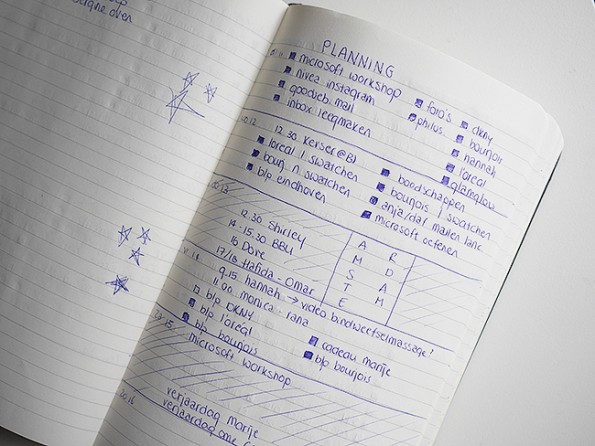 oven
PLANNING
microsoft workshop
nivea instagram
goodieb. mail
inbox leegmaken
foto's
philus.
dkny
bourjois
hannah
l'oreal
glamglow
12.30 Kerser@BJ
loreal l. swatchen
bourj. n. swatchen
blp eindhoven
boodschappen
bourjois l swatchen
anja/daf mailen lanc
microsoft oefenen
10.12
12.30 Shirley
14-15.30 BBU
16 Dore
17/18 Hafida - Omar
A R
M D
S A
T M
E
9.15 hannah → video bindweefselmassage?
11.00 monica - rana
blp DKNY
blp l'oreal
blp bourjois
cadeau marije
blp bourjois
microsoft workshop
verjaardag marije
verjaardag